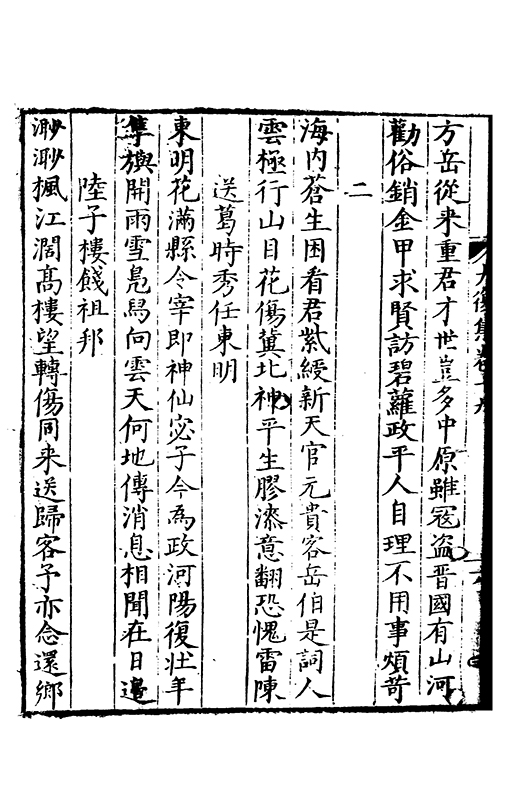 方岳從来重君才世豈多中原雖寇盗晋國有山河
勸俗銷金甲求賢訪碧蘿政平人自理不用事煩苛
二
海内蒼生困看君紫綬新天官元貴客岳伯是詞人
雲極行山目花傷冀北神平生膠漆意翻恐愧雷陳
送葛時秀任東明
東明花滿縣令宰即神仙宓子今為政河陽復壮年
隼旟開雨雪鳧舄向雲天何地傳消息相聞在日邊
陸子樓餞祖邦
渺渺楓江濶髙樓望轉傷同来送歸客予亦念還鄉